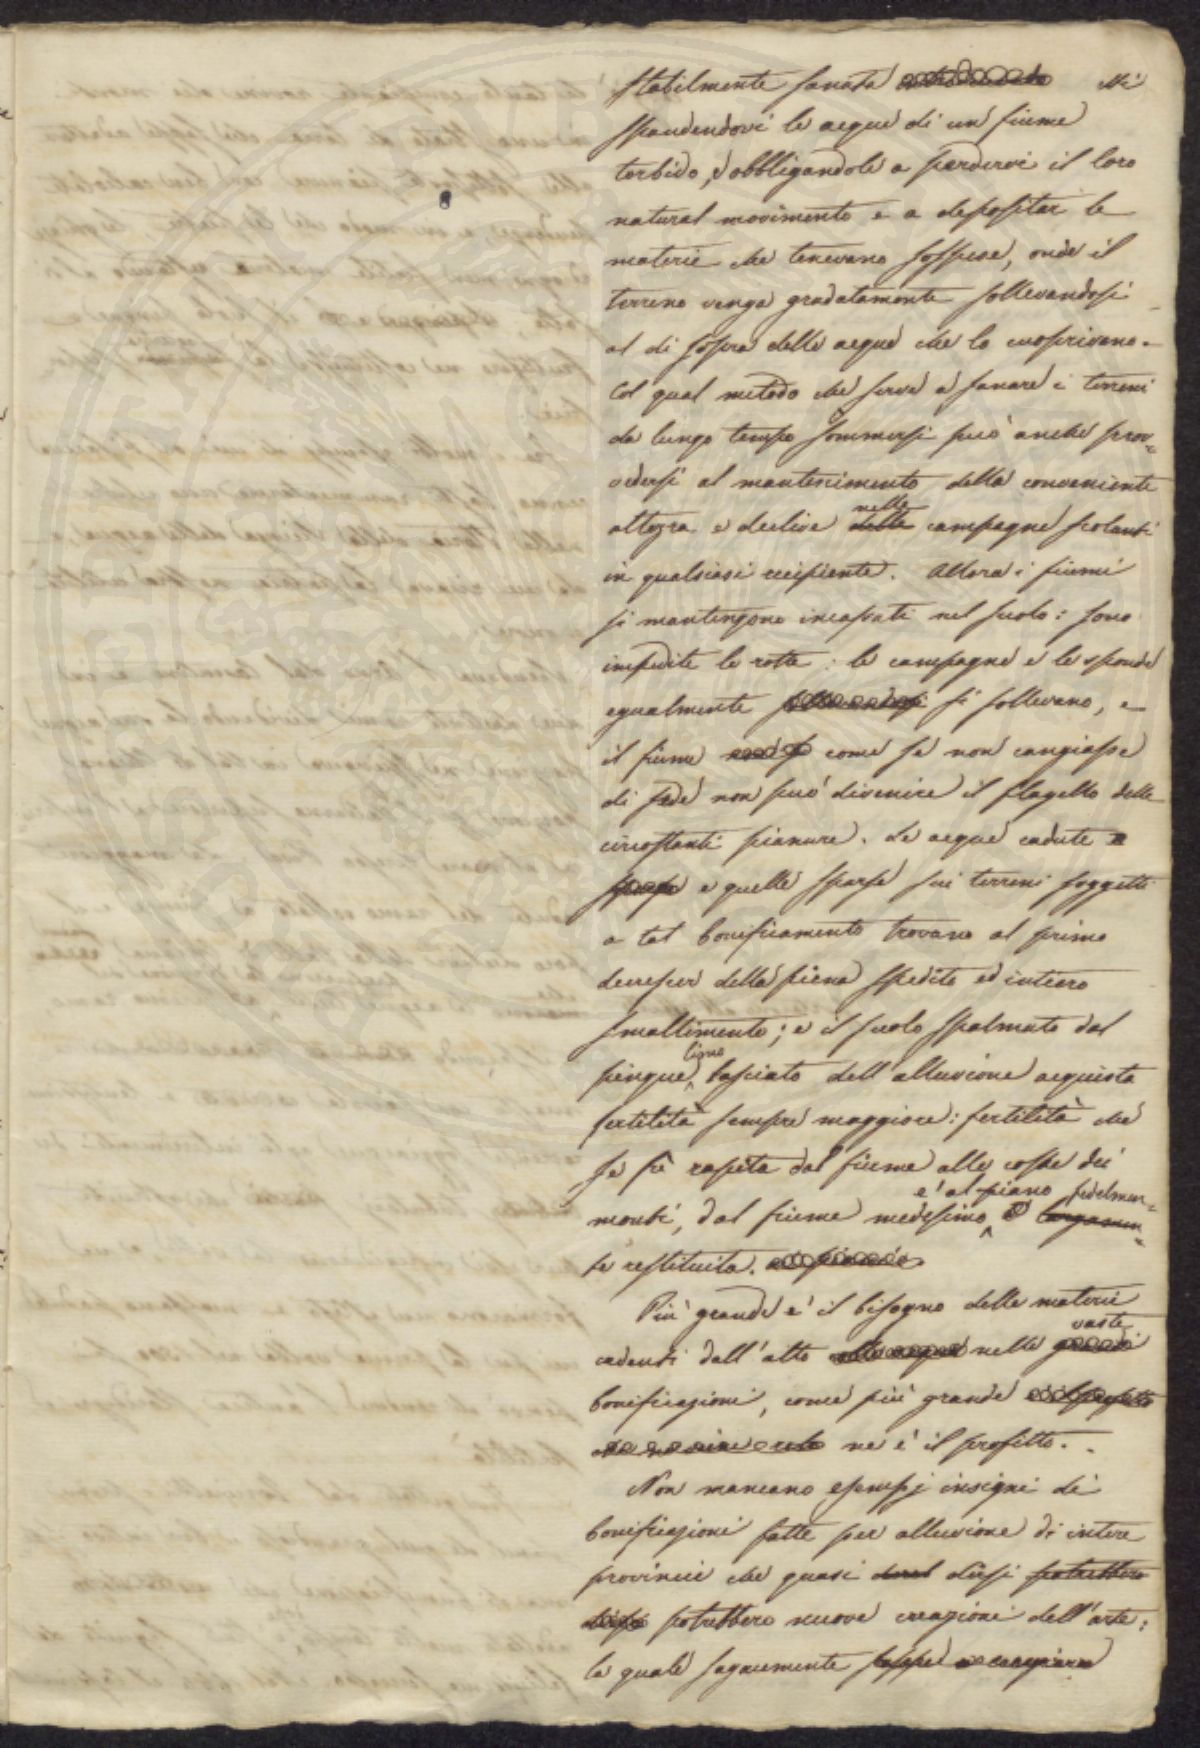 stabilmente sanata di
spandendovi le acque di un fiume
torbido, obbligandole a perdervi il loro
natural movimento e a depositar le
materie che tenevano sospese, onde il
terreno venga gradatamente sollevandosi
al di sopra delle acque che lo cuoprivano.
Col qual metodo che serve a sanare i terreni
da lungo tempo sommersi può anche prov=
vedersi al mantenimento della conveniente
altezza e declive delle nelle campagne scolanti
in qualsiasi recipiente. Allora i fiumi
si mantengono incassati nel suolo: sono
impedite le rotte: le campagne e le sponde
egualmente sollevandosi si sollevano, e
il fiume come se non cangiasse
di sede non può divenire il flagello delle
circostanti pianure. Le acque cadute e
sparse e quelle sparse sui terreni soggetti
a tal bonificamento trovano al primo
decrescer della piena spedito ed intiero
smaltimento; e il suolo spalmato dal
pingue limo lasciato dell'alluvione acquista
fertilità sempre maggiore: fertilità che
se fù rapita dal fiume alle coste dei
monti, dal fiume medesimo è al piano fedelmen=
te restituita. al piano
Più grande è il bisogno delle materie
cadenti dall'alto delle acque nelle grandi vaste
bonificazioni, come più grande
ne è il profitto.
Non mancano esempj insigni di
bonificazioni fatte per alluvione di intere
provincie che quasi dirsi potrebbero
dirsi potrebbero nuove creazioni dell'arte:
la quale sagacemente seppe